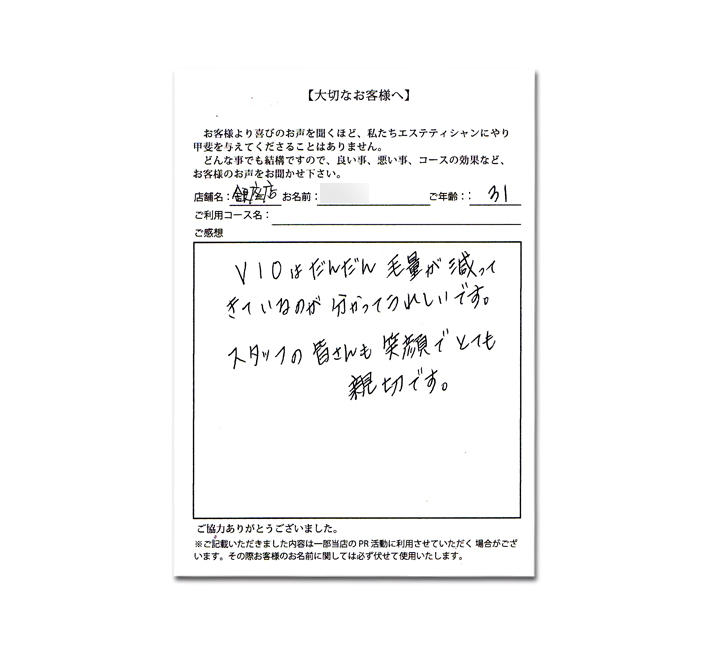 【大切なお客様へ】
お客様より喜びのお声を聞くほど、私たちエステティシャンにやり
甲斐を与えてくださることはありません。
どんな事でも結構ですので、良い事、悪い事、コースの効果など、
お客様のお声をお聞かせ下さい。
店舗名：銀座店 お名前： ご年齢：: 31
ご利用コース名：
ご感想
VIOはだんだん毛量が減って
きているのが分かってうれしいです。
スタッフの皆さんも笑顔でとても
親切です。
ご協力ありがとうございました。
※ご記載いただきました内容は一部当店のPR活動に利用させていただく場合がござ
います。その際お客様のお名前に関しては必ず伏せて使用いたします。